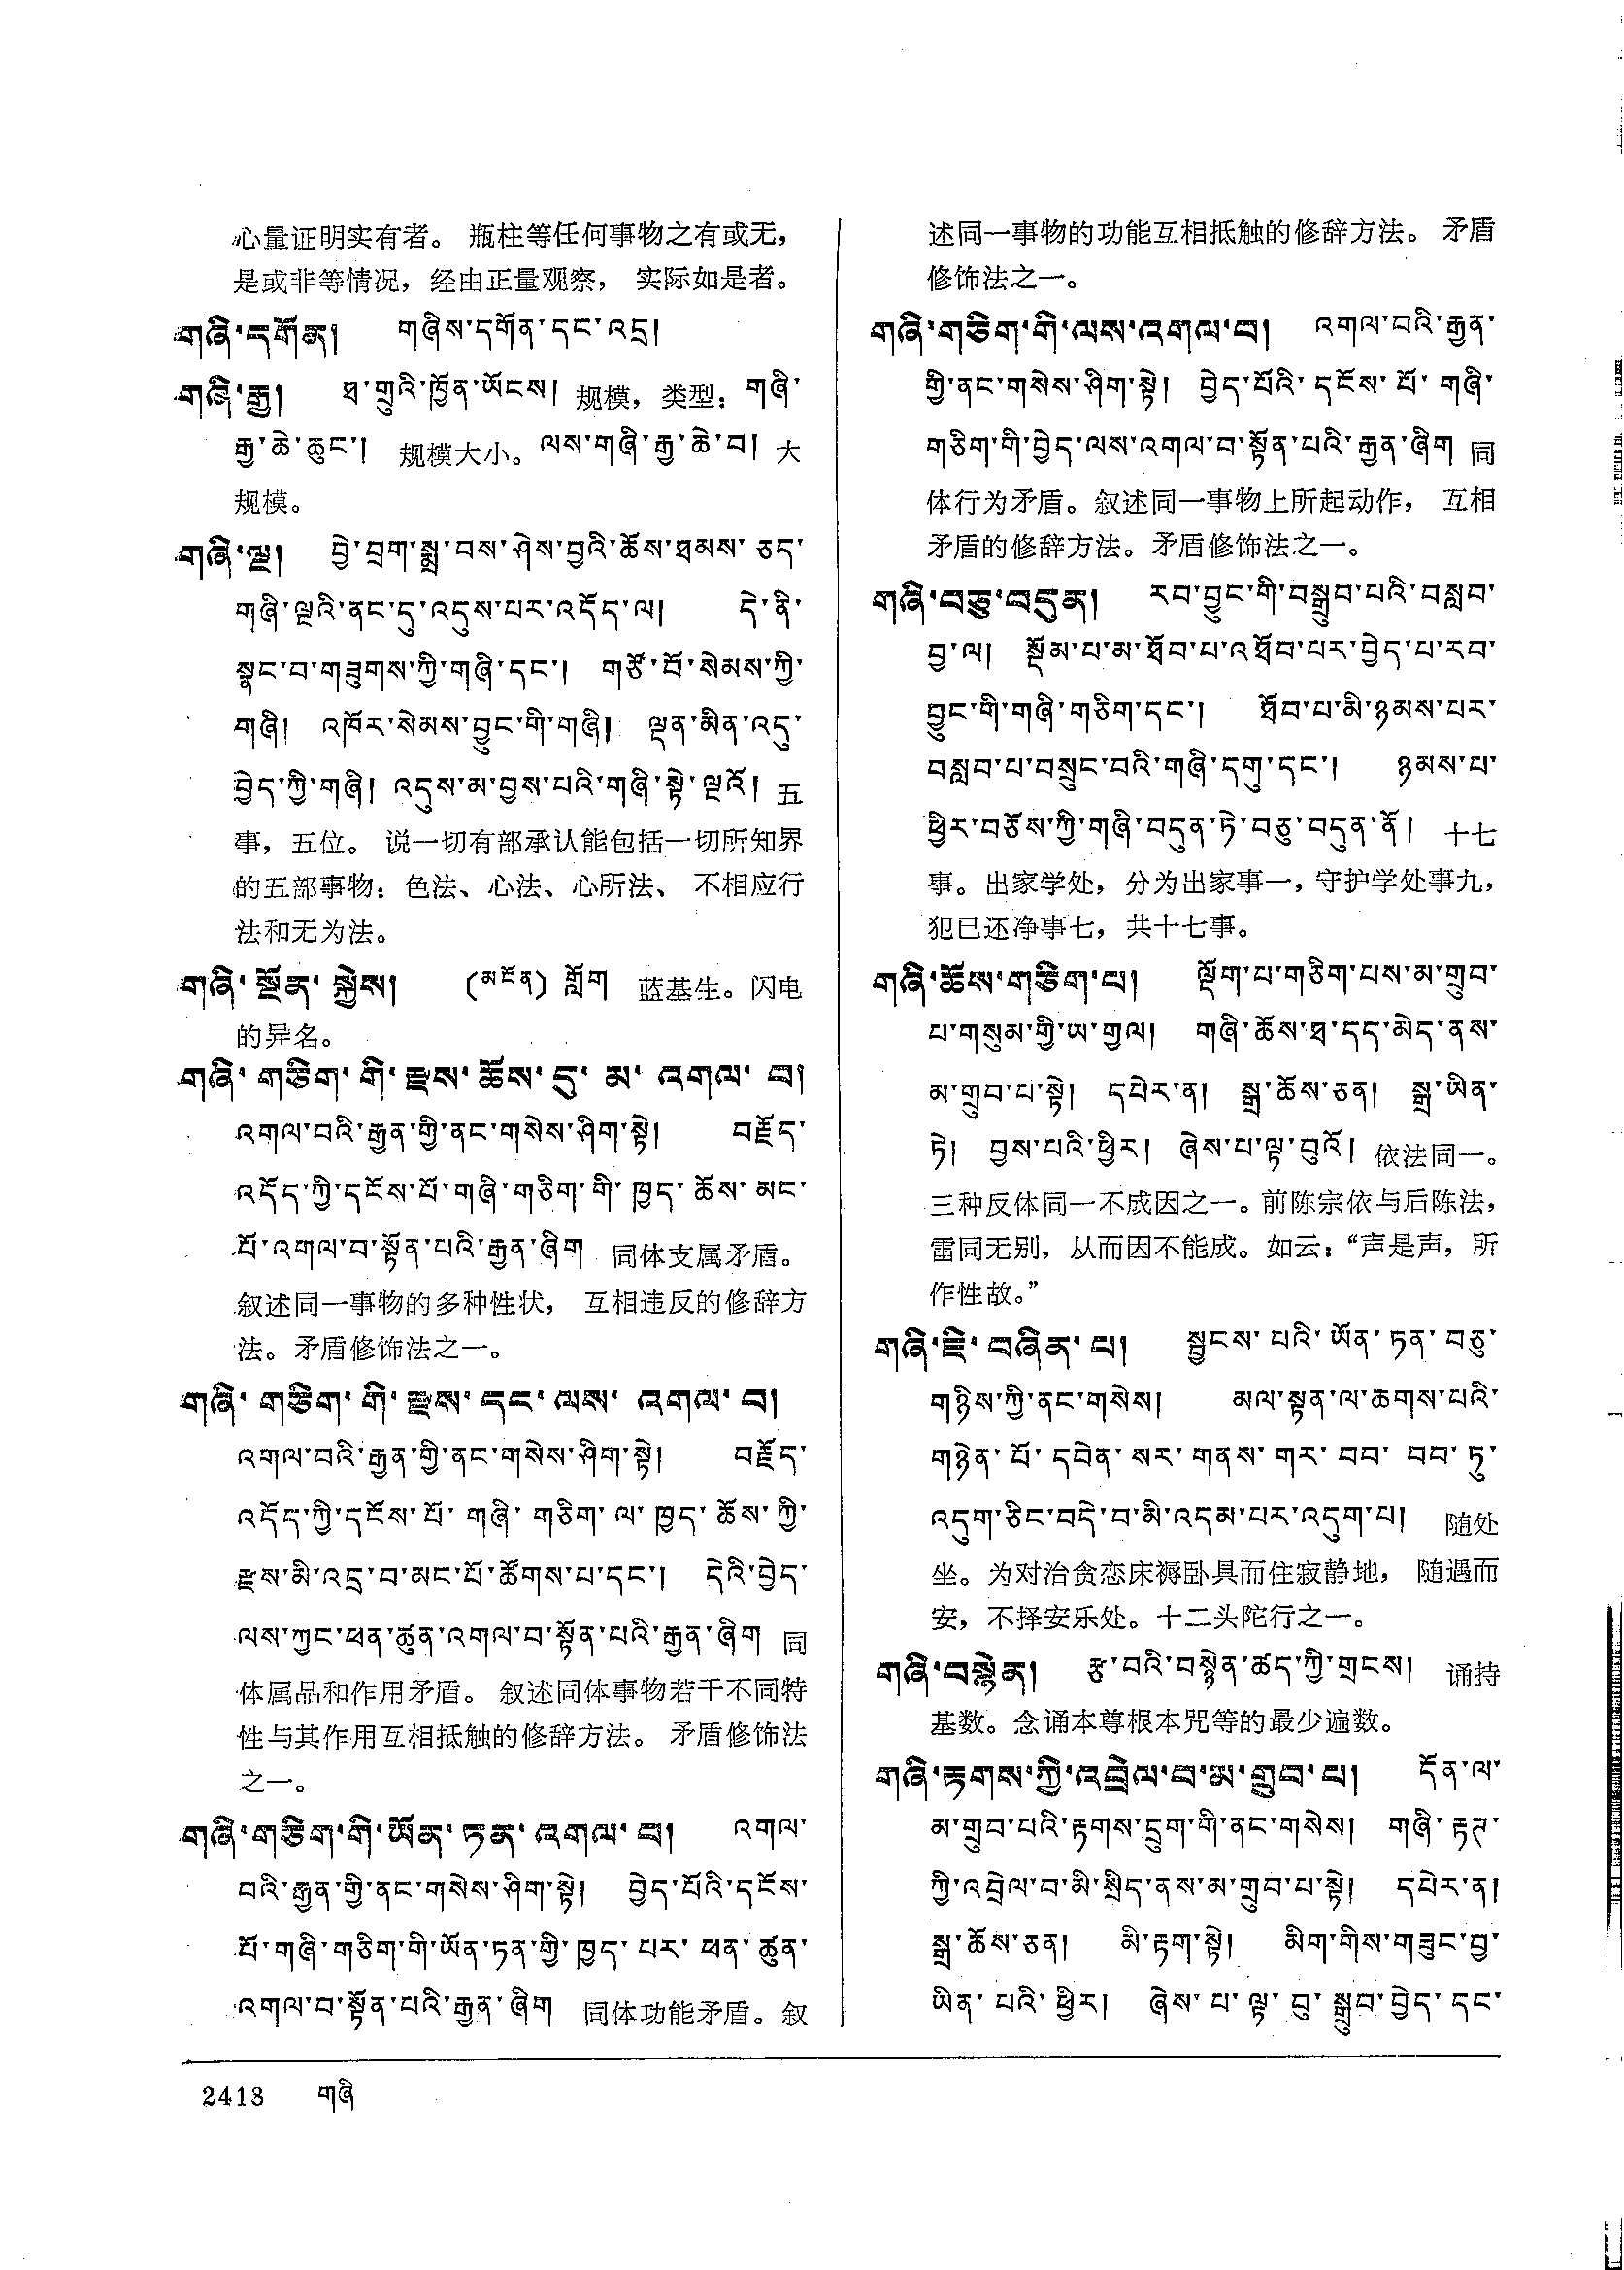 心量证明实有者。 瓶柱等任何事物之有或无，
是或非等情况，经由正量观察， 实际如是者。
གཞི་དགོན། གཞིས་དགོན་དང་འདྲ།
གཞི་རྒྱ། ཐ་གྲུའི་ཁྱོན་ཡོངས། 规模，类型：གཞི་
རྒྱ་ཆེ་ཆུང་། 规模大小。ལས་གཞི་རྒྱ་ཆེ་བ། 大
规模。
གཞི་ལྔ། བྱེ་བྲག་སྨྲ་བས་ཤེས་བྱའི་ཆོས་ཐམས་ཅད་
གཞི་ལྔའི་ནང་དུ་འདུས་པར་འདོད་ལ། དེ་ནི་
སྣང་བ་གཟུགས་ཀྱི་གཞི་དང་། གཙོ་བོ་སེམས་ཀྱི་
གཞི། འཁོར་སེམས་བྱུང་གི་གཞི། ལྡན་མིན་འདུ་
བྱེད་ཀྱི་གཞི། འདུས་མ་བྱས་པའི་གཞི་སྟེ་ལྔའོ། 五
事，五位。 说一切有部承认能包括一切所知界
的五部事物：色法、心法、心所法、 不相应行
法和无为法。
གཞི་སྔོན་སྐྱེས། (མངོན) གློག 蓝基生。闪电
的异名。
གཞི་གཅིག་གི་རྫས་ཆོས་དུ་མ་འགལ་བ།
འགལ་བའི་རྒྱན་གྱི་ནང་གསེས་ཤིག་སྟེ། བརྗོད་
འདོད་ཀྱི་དངོས་པོ་གཞི་གཅིག་གི་ཁྱད་ཆོས་མང་
པོ་འགལ་བ་སྟོན་པའི་རྒྱན་ཞིག 同体支属矛盾。
叙述同一事物的多种性状， 互相违反的修辞方
法。矛盾修饰法之一。
གཞི་གཅིག་གི་རྫས་དང་ལས་འགལ་བ།
འགལ་བའི་རྒྱན་གྱི་ནང་གསེས་ཤིག་སྟེ། བརྗོད་
འདོད་ཀྱི་དངོས་པོ་གཞི་གཅིག་ལ་ཁྱད་ཆོས་ཀྱི་
རྫས་མི་འདྲ་བ་མང་པོ་ཚོགས་པ་དང་། དེའི་བྱེད་
ལས་ཀྱང་ཕན་ཚུན་འགལ་བ་སྟོན་པའི་རྒྱན་ཞིག 同
体属品和作用矛盾。 叙述同体事物若干不同特
性与其作用互相抵触的修辞方法。 矛盾修饰法
之一。
གཞི་གཅིག་གི་ཡོན་ཏན་འགལ་བ། འགལ་
བའི་རྒྱན་གྱི་ནང་གསེས་ཤིག་སྟེ། བྱེད་པོའི་དངོས་
པོ་གཞི་གཅིག་གི་ཡོན་ཏན་གྱི་ཁྱད་པར་ཕན་ཚུན་
འགལ་བ་སྟོན་པའི་རྒྱན་ཞིག 同体功能矛盾。叙
述同一事物的功能互相抵触的修辞方法。 矛盾
修饰法之一。
གཞི་གཅིག་གི་ལས་འགལ་བ། འགལ་བའི་རྒྱན་
གྱི་ནང་གསེས་ཤིག་སྟེ། བྱེད་པོའི་དངོས་པོ་གཞི་
གཅིག་གི་བྱེད་ལས་འགལ་བ་སྟོན་པའི་རྒྱན་ཞིག 同
体行为矛盾。叙述同一事物上所起动作， 互相
矛盾的修辞方法。矛盾修饰法之一。
གཞི་བཅུ་བདུན། རབ་བྱུང་གི་བསྒྲུབ་པའི་བསླབ་
བྱ་ལ། སྡོམ་པ་མ་ཐོབ་པ་འཐོབ་པར་བྱེད་པ་རབ་
བྱུང་གི་གཞི་གཅིག་དང་། ཐོབ་པ་མི་ཉམས་པར་
བསླབ་པ་བསྲུང་བའི་གཞི་དགུ་དང་། ཉམས་པ་
ཕྱིར་བཅོས་ཀྱི་གཞི་བདུན་ཏེ་བཅུ་བདུན་ནོ། 十七
事。出家学处，分为出家事一，守护学处事九，
犯已还净事七，共十七事。
གཞི་ཆོས་གཅིག་པ། ལྡོག་པ་གཅིག་པས་མ་གྲུབ་
པ་གསུམ་གྱི་ཡ་གྱལ། གཞི་ཆོས་ཐ་དད་མེད་ནས་
མ་གྲུབ་པ་སྟེ། དཔེར་ན། སྒྲ་ཆོས་ཅན། སྒྲ་ཡིན་
ཏེ། བྱས་པའི་ཕྱིར། ཞེས་པ་ལྟ་བུའོ། 依法同一。
三种反体同一不成因之一。前陈宗依与后陈法，
雷同无别，从而因不能成。如云：“声是声，所
作性故。”
གཞི་ཇི་བཞིན་པ། སྦྱངས་པའི་ཡོན་ཏན་བཅུ་
གཉིས་ཀྱི་ནང་གསེས། མལ་སྟན་ལ་ཆགས་པའི་
གཉེན་པོ་དབེན་སར་གནས་གར་བབ་བབ་ཏུ་
འདུག་ཅིང་བདེ་བ་མི་འདམ་པར་འདུག་པ། 随处
坐。为对治贪恋床褥卧具而住寂静地， 随遇而
安，不择安乐处。十二头陀行之一。
གཞི་བསྙེན། རྩ་བའི་བསྙེན་ཚད་ཀྱི་གྲངས། 诵持
基数。念诵本尊根本咒等的最少遍数。
གཞི་རྟགས་ཀྱི་འབྲེལ་བ་མ་གྲུབ་པ། དོན་ལ་
མ་གྲུབ་པའི་རྟགས་དྲུག་གི་ནང་གསེས། གཞི་རྟཊ་
ཀྱི་འབྲེལ་བ་མི་སྲིད་ནས་མ་གྲུབ་པ་སྟེ། དཔེར་ན།
སྒྲ་ཆོས་ཅན། མི་རྟག་སྟེ། མིག་གིས་གཟུང་བྱ་
ཡིན་པའི་ཕྱིར། ཞེས་པ་ལྟ་བུ་སྒྲུབ་བྱེད་དང་
2413 གཞི